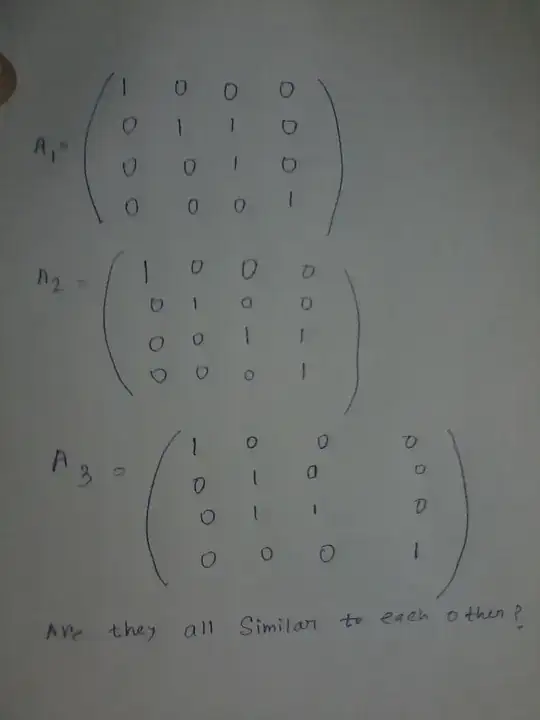 1 0 0 0
A1= 0 1 1 0
0 0 1 0
0 0 0 1
A2= 1 0 0 0
0 1 0 0
0 0 1 1
0 0 0 1
A3= 1 0 0 0
0 1 0 0
0 1 1 0
0 0 0 1
Are they all Similar to each other?